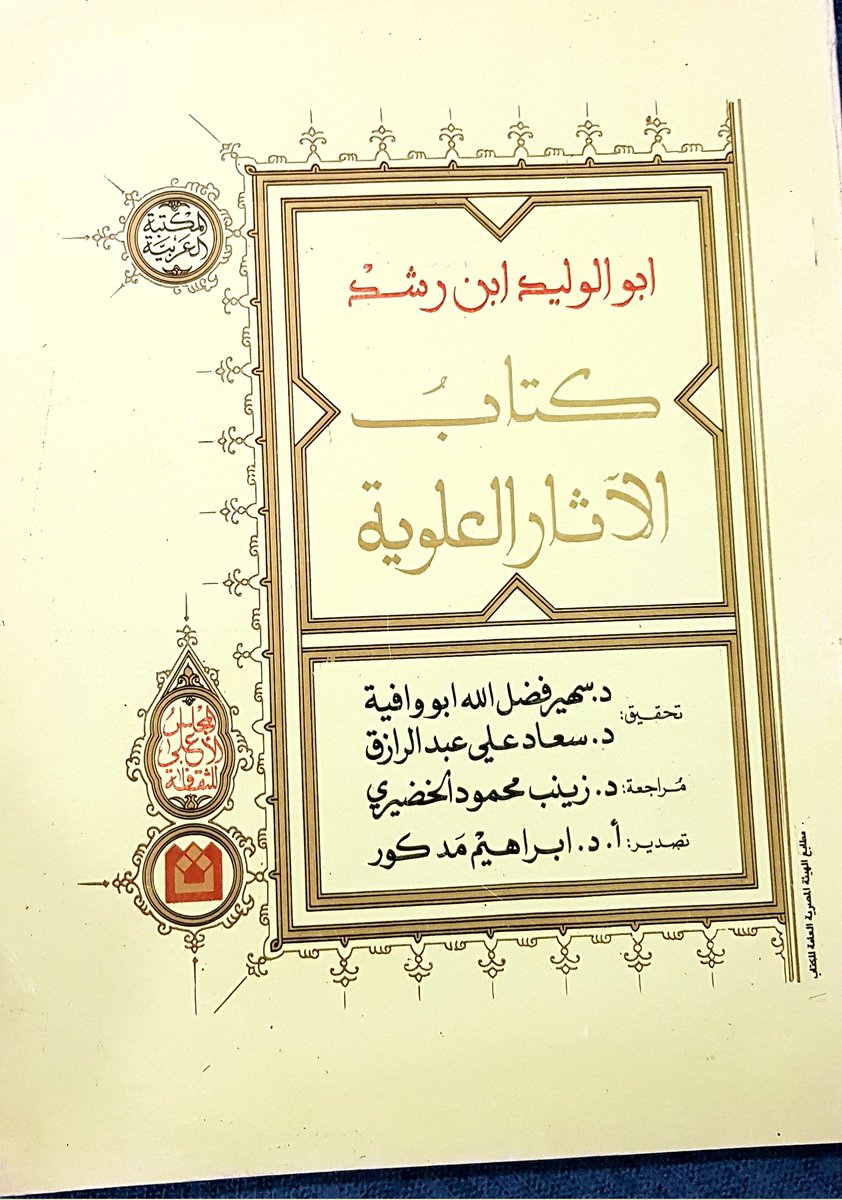 المكتبة
العربية
ابو الوليد ابن رشد
كتاب
الآثار العلوية
تحقيق: د. سهير فضل الله ابو وافية
د. سعاد على عبد الرازق
مراجعة: د. زينب محمود الخضيري
تصدير: أ. د. ابراهيم مدكور
المجلس
الأعلى
للثقافة
مطابع الهيئة المصرية العامة للكتاب